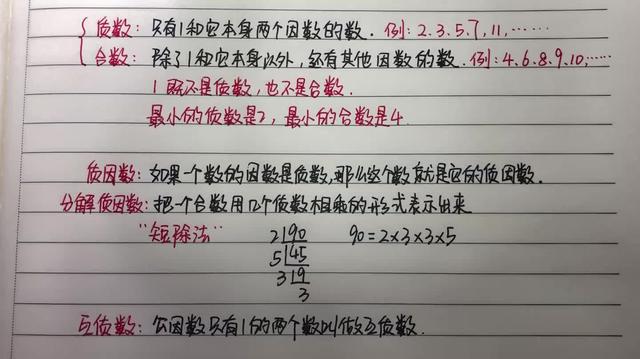 质数：只有1和它本身两个因数的数．例：2.3.5.7,11,……
合数：除了1和它本身以外，还有其他因数的数．例：4.6.8.9.10,……
1既不是质数，也不是合数．
最小的质数是2，最小的合数是4
质因数：如果一个数的因数是质数,那么这个数就是它的质因数．
分解质因数：把一个合数用几个质数相乘的形式表示出来
"短除法" 2|90 90=2×3×3×5
5|45
3|9
3
互质数：公因数只有1的两个数叫做互质数．